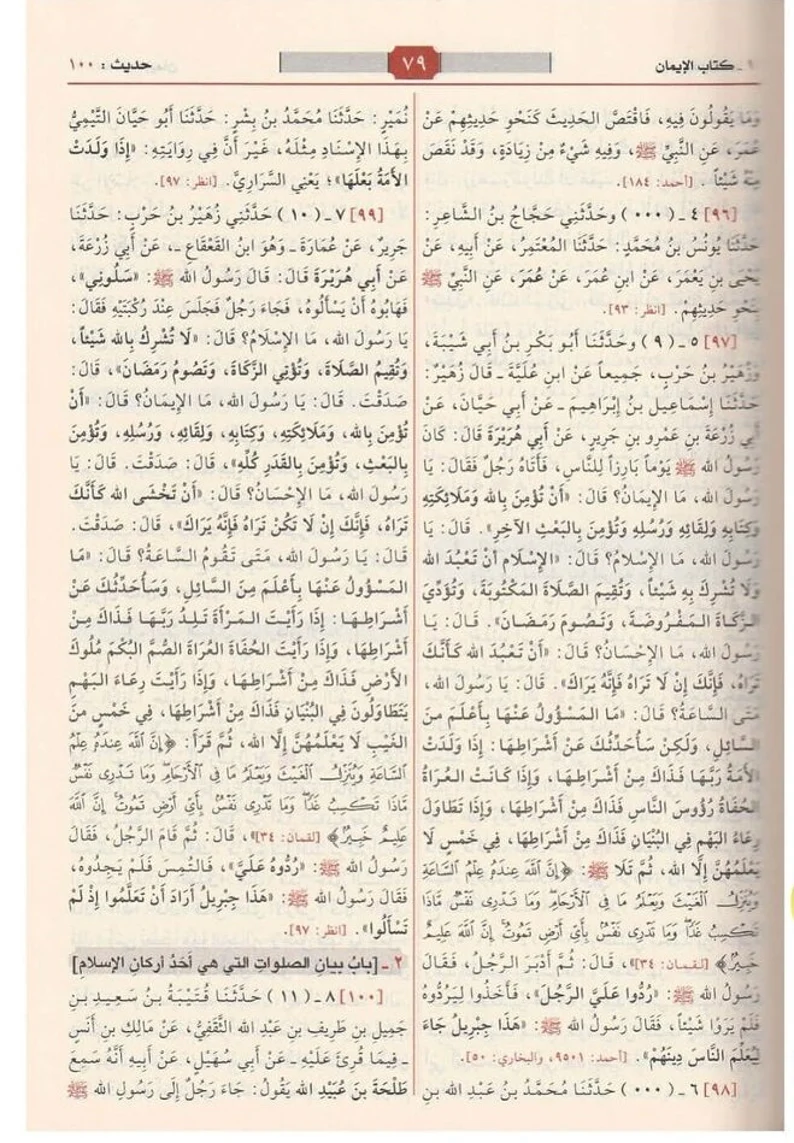 ١ ـ كتاب الإيمان
٧٩
حديث : ١٠٠
وَمَا يَقُولُونَ فِيهِ، فَاقْتَصَّ الحَدِيثَ كَنَحْوِ حَدِيثِهِمْ عَنْ
عُمَرَ، عَنِ النَّبِيِّ ﷺ، وَفِيهِ شَيْءٌ مِنْ زِيَادَةٍ، وَقَدْ نَقَصَ
مِنْهُ شَيْئاً . [أحمد: ١٨٤].
[٩٦] ٤ ـ (٠٠٠) وحَدَّثَنِي حَجَّاجُ بنُ الشَّاعِرِ:
حَدَّثَنَا يُونُسُ بنُ مُحَمَّدٍ: حَدَّثَنَا المُعْتَمِرُ، عَنْ أَبِيهِ، عَنْ
يَحْيَى بنِ يَعْمَرَ، عَنِ ابنِ عُمَرَ، عَنْ عُمَرَ، عَنِ النَّبِيِّ ﷺ
بِنَحْوِ حَدِيثِهِمْ. [انظر: ٩٣].
[٩٧] ٥ ـ (٩) وحَدَّثَنَا أَبُو بَكْرِ بنُ أَبِي شَيْبَةَ،
وَزُهَيْرُ بنُ حَرْبٍ، جَمِيعاً عَنِ ابنِ عُلَيَّةَ ـ قَالَ زُهَيْرٌ:
حَدَّثَنَا إِسْمَاعِيلُ بنُ إِبْرَاهِيمَ ـ عَنْ أَبِي حَيَّانَ، عَنْ
أَبِي زُرْعَةَ بنِ عَمْرِو بنِ جَرِيرٍ، عَنْ أَبِي هُرَيْرَةَ قَالَ: كَانَ
رَسُولُ الله ﷺ يَوْماً بَارِزاً لِلنَّاسِ، فَأَتَاهُ رَجُلٌ فَقَالَ: يَا
رَسُولَ الله، مَا الإِيمَانُ؟ قَالَ: «أَنْ تُؤْمِنَ بِالله وَمَلَائِكَتِهِ
وَكِتَابِهِ وَلِقَائِهِ وَرُسُلِهِ وَتُؤْمِنَ بِالبَعْثِ الآخِرِ». قَالَ: يَا
رَسُولَ الله، مَا الإِسْلَامُ؟ قَالَ: «الإِسْلَام أَنْ تَعْبُدَ الله
وَلَا تُشْرِكَ بِهِ شَيْئاً، وَتُقِيمَ الصَّلَاةَ المَكْتُوبَةَ، وَتُؤَدِّيَ
الزَّكَاةَ المَفْرُوضَةَ، وَتَصُومَ رَمَضَانَ». قَالَ: يَا
رَسُولَ الله، مَا الإِحْسَانُ؟ قَالَ: «أَنْ تَعْبُدَ الله كَأَنَّكَ
تَرَاهُ، فَإِنَّكَ إِنْ لَا تَرَاهُ فَإِنَّهُ يَرَاكَ». قَالَ: يَا رَسُولَ الله،
مَتَى السَّاعَةُ؟ قَالَ: «مَا المَسْؤُولُ عَنْهَا بِأَعْلَمَ مِنَ
السَّائِلِ، وَلَكِنْ سَأُحَدِّثُكَ عَنْ أَشْرَاطِهَا: إِذَا وَلَدَتْ
الأَمَةُ رَبَّهَا فَذَاكَ مِنْ أَشْرَاطِهَا، وَإِذَا كَانَتْ العُرَاةُ
الحُفَاةُ رُؤُوسَ النَّاسِ فَذَاكَ مِنْ أَشْرَاطِهَا، وَإِذَا تَطَاوَلَ
رِعَاءُ البَهْمِ فِي البُنْيَانِ فَذَاكَ مِنْ أَشْرَاطِهَا، فِي خَمْسٍ لَا
يَعْلَمُهُنَّ إِلَّا الله، ثُمَّ تَلَا ﷺ: ﴿إِنَّ ٱللَّهَ عِندَهُۥ عِلْمُ ٱلسَّاعَةِ
وَيُنَزِّلُ ٱلْغَيْثَ وَيَعْلَمُ مَا فِى ٱلْأَرْحَامِ وَمَا تَدْرِى نَفْسٌ مَّاذَا
تَكْسِبُ غَدًا وَمَا تَدْرِى نَفْسٌ بِأَىِّ أَرْضٍ تَمُوتُ إِنَّ ٱللَّهَ عَلِيمٌ
خَبِيرٌ﴾ [لقمان: ٣٤]». قَالَ: ثُمَّ أَدْبَرَ الرَّجُلُ، فَقَالَ
رَسُولُ الله ﷺ: «رُدُّوا عَلَيَّ الرَّجُلَ»، فَأَخَذُوا لِيَرُدُّوهُ
فَلَمْ يَرَوْا شَيْئاً، فَقَالَ رَسُولُ الله ﷺ: «هَذَا جِبْرِيلُ جَاءَ
لِيُعَلِّمَ النَّاسَ دِينَهُمْ». [أحمد: ٩٥٠١، والبخاري: ٥٠].
[٩٨] ٦ ـ (٠٠٠) حَدَّثَنَا مُحَمَّدُ بنُ عَبْدِ الله بنِ
نُمَيْرٍ: حَدَّثَنَا مُحَمَّدُ بنُ بِشْرٍ: حَدَّثَنَا أَبُو حَيَّانَ التَّيْمِيُّ
بِهَذَا الإِسْنَادِ مِثْلَهُ، غَيْرَ أَنَّ فِي رِوَايَتِهِ: «إِذَا وَلَدَتْ
الأَمَةُ بَعْلَهَا»؛ يَعْنِي السَّرَارِيَّ. [انظر: ٩٧].
[٩٩] ٧ ـ (١٠) حَدَّثَنِي زُهَيْرُ بنُ حَرْبٍ: حَدَّثَنَا
جَرِيرٌ، عَنْ عُمَارَةَ ـ وَهُوَ ابنُ القَعْقَاعِ ـ، عَنْ أَبِي زُرْعَةَ،
عَنْ أَبِي هُرَيْرَةَ قَالَ: قَالَ رَسُولُ الله ﷺ: «سَلُونِي»،
فَهَابُوهُ أَنْ يَسْأَلُوهُ، فَجَاءَ رَجُلٌ فَجَلَسَ عِنْدَ رُكْبَتَيْهِ فَقَالَ:
يَا رَسُولَ الله، مَا الإِسْلَامُ؟ قَالَ: «لَا تُشْرِكُ بِالله شَيْئاً،
وَتُقِيمُ الصَّلَاةَ، وَتُؤْتِي الزَّكَاةَ، وَتَصُومُ رَمَضَانَ»، قَالَ:
صَدَقْتَ. قَالَ: يَا رَسُولَ الله، مَا الإِيمَانُ؟ قَالَ: «أَنْ
تُؤْمِنَ بِالله، وَمَلَائِكَتِهِ، وَكِتَابِهِ، وَلِقَائِهِ، وَرُسُلِهِ، وَتُؤْمِنَ
بِالبَعْثِ، وَتُؤْمِنَ بِالقَدَرِ كُلِّهِ»، قَالَ: صَدَقْتَ. قَالَ: يَا
رَسُولَ الله، مَا الإِحْسَانُ؟ قَالَ: «أَنْ تَخْشَى الله كَأَنَّكَ
تَرَاهُ، فَإِنَّكَ إِنْ لَا تَكُنْ تَرَاهُ فَإِنَّهُ يَرَاكَ»، قَالَ: صَدَقْتَ.
قَالَ: يَا رَسُولَ الله، مَتَى تَقُومُ السَّاعَةُ؟ قَالَ: «مَا
المَسْؤُولُ عَنْهَا بِأَعْلَمَ مِنَ السَّائِلِ، وَسَأُحَدِّثُكَ عَنْ
أَشْرَاطِهَا: إِذَا رَأَيْتَ المَرْأَةَ تَلِدُ رَبَّهَا فَذَاكَ مِنْ
أَشْرَاطِهَا، وَإِذَا رَأَيْتَ الحُفَاةَ العُرَاةَ الصُّمَّ البُكْمَ مُلُوكَ
الأَرْضِ فَذَاكَ مِنْ أَشْرَاطِهَا، وَإِذَا رَأَيْتَ رِعَاءَ البَهْمِ
يَتَطَاوَلُونَ فِي البُنْيَانِ فَذَاكَ مِنْ أَشْرَاطِهَا، فِي خَمْسٍ مِنَ
الغَيْبِ لَا يَعْلَمُهُنَّ إِلَّا الله، ثُمَّ قَرَأَ: ﴿إِنَّ ٱللَّهَ عِندَهُۥ عِلْمُ
ٱلسَّاعَةِ وَيُنَزِّلُ ٱلْغَيْثَ وَيَعْلَمُ مَا فِى ٱلْأَرْحَامِ وَمَا تَدْرِى نَفْسٌ
مَّاذَا تَكْسِبُ غَدًا وَمَا تَدْرِى نَفْسٌ بِأَىِّ أَرْضٍ تَمُوتُ إِنَّ ٱللَّهَ
عَلِيمٌ خَبِيرٌ﴾ [لقمان: ٣٤]»، قَالَ: ثُمَّ قَامَ الرَّجُلُ، فَقَالَ
رَسُولُ الله ﷺ: «رُدُّوهُ عَلَيَّ»، فَالتُمِسَ فَلَمْ يَجِدُوهُ،
فَقَالَ رَسُولُ الله ﷺ: «هَذَا جِبْرِيلُ أَرَادَ أَنْ تَعَلَّمُوا إِذْ لَمْ
تَسْأَلُوا». [انظر: ٩٧].
٢ ـ [بابُ بيانِ الصلواتِ التي هي أحَدُ أركانِ الإسلامِ]
[١٠٠] ٨ ـ (١١) حَدَّثَنَا قُتَيْبَةُ بنُ سَعِيدِ بنِ
جَمِيلِ بنِ طَرِيفِ بنِ عَبْدِ الله الثَّقَفِيُّ، عَنْ مَالِكِ بنِ أَنَسٍ
ـ فِيمَا قُرِئَ عَلَيْهِ ـ عَنْ أَبِي سُهَيْلٍ، عَنْ أَبِيهِ أَنَّهُ سَمِعَ
طَلْحَةَ بْنَ عُبَيْدِ الله يَقُولُ: جَاءَ رَجُلٌ إِلَى رَسُولِ الله ﷺ